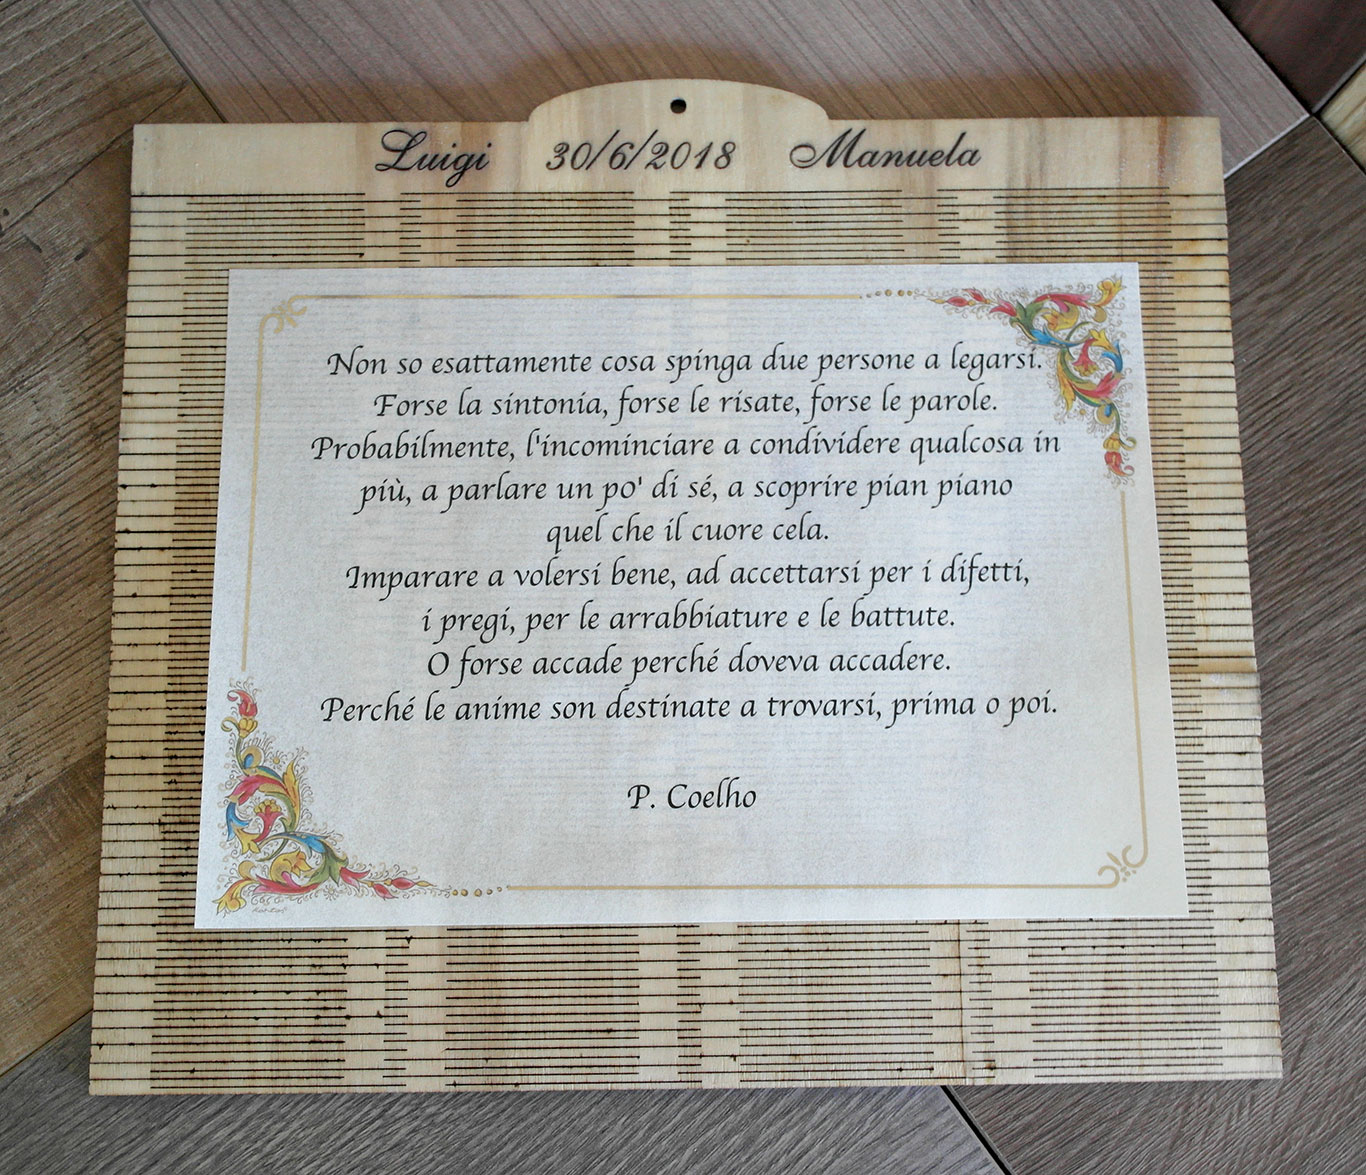 Luigi 30/6/2018 Manuela
Non so esattamente cosa spinga due persone a legarsi.
Forse la sintonia, forse le risate, forse le parole.
Probabilmente, l'incominciare a condividere qualcosa in
più, a parlare un po' di sé, a scoprire pian piano
quel che il cuore cela.
Imparare a volersi bene, ad accettarsi per i difetti,
i pregi, per le arrabbiature e le battute.
O forse accade perché doveva accadere.
Perché le anime son destinate a trovarsi, prima o poi.
P. Coelho